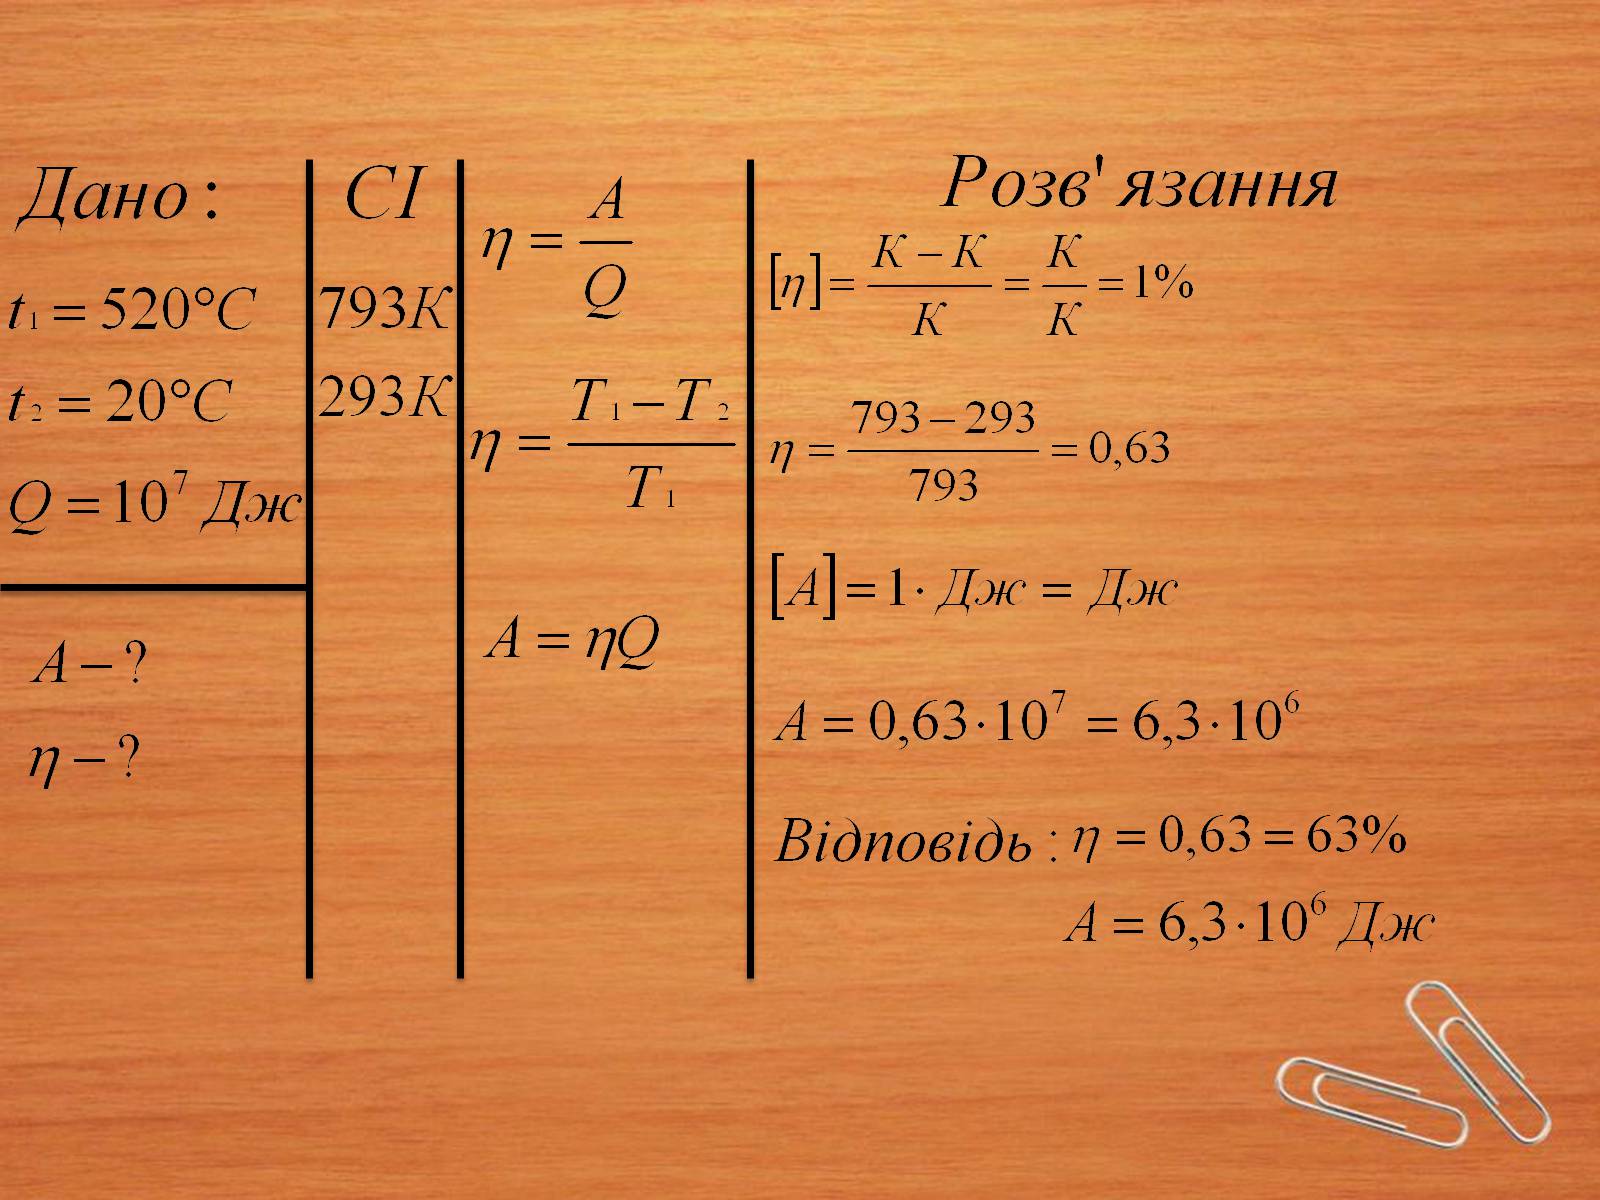 Дано :
t₁ = 520°C
t₂ = 20°C
Q = 10⁷ Дж
A – ?
η – ?
СІ
793К
293К
η = A / Q
η = (T₁ – T₂) / T₁
A = ηQ
Розв' язання
[η] = (К – К) / К = К / К = 1%
η = (793 – 293) / 793 = 0,63
[A] = 1 · Дж = Дж
A = 0,63 · 10⁷ = 6,3 · 10⁶
Відповідь : η = 0,63 = 63%
A = 6,3 · 10⁶ Дж